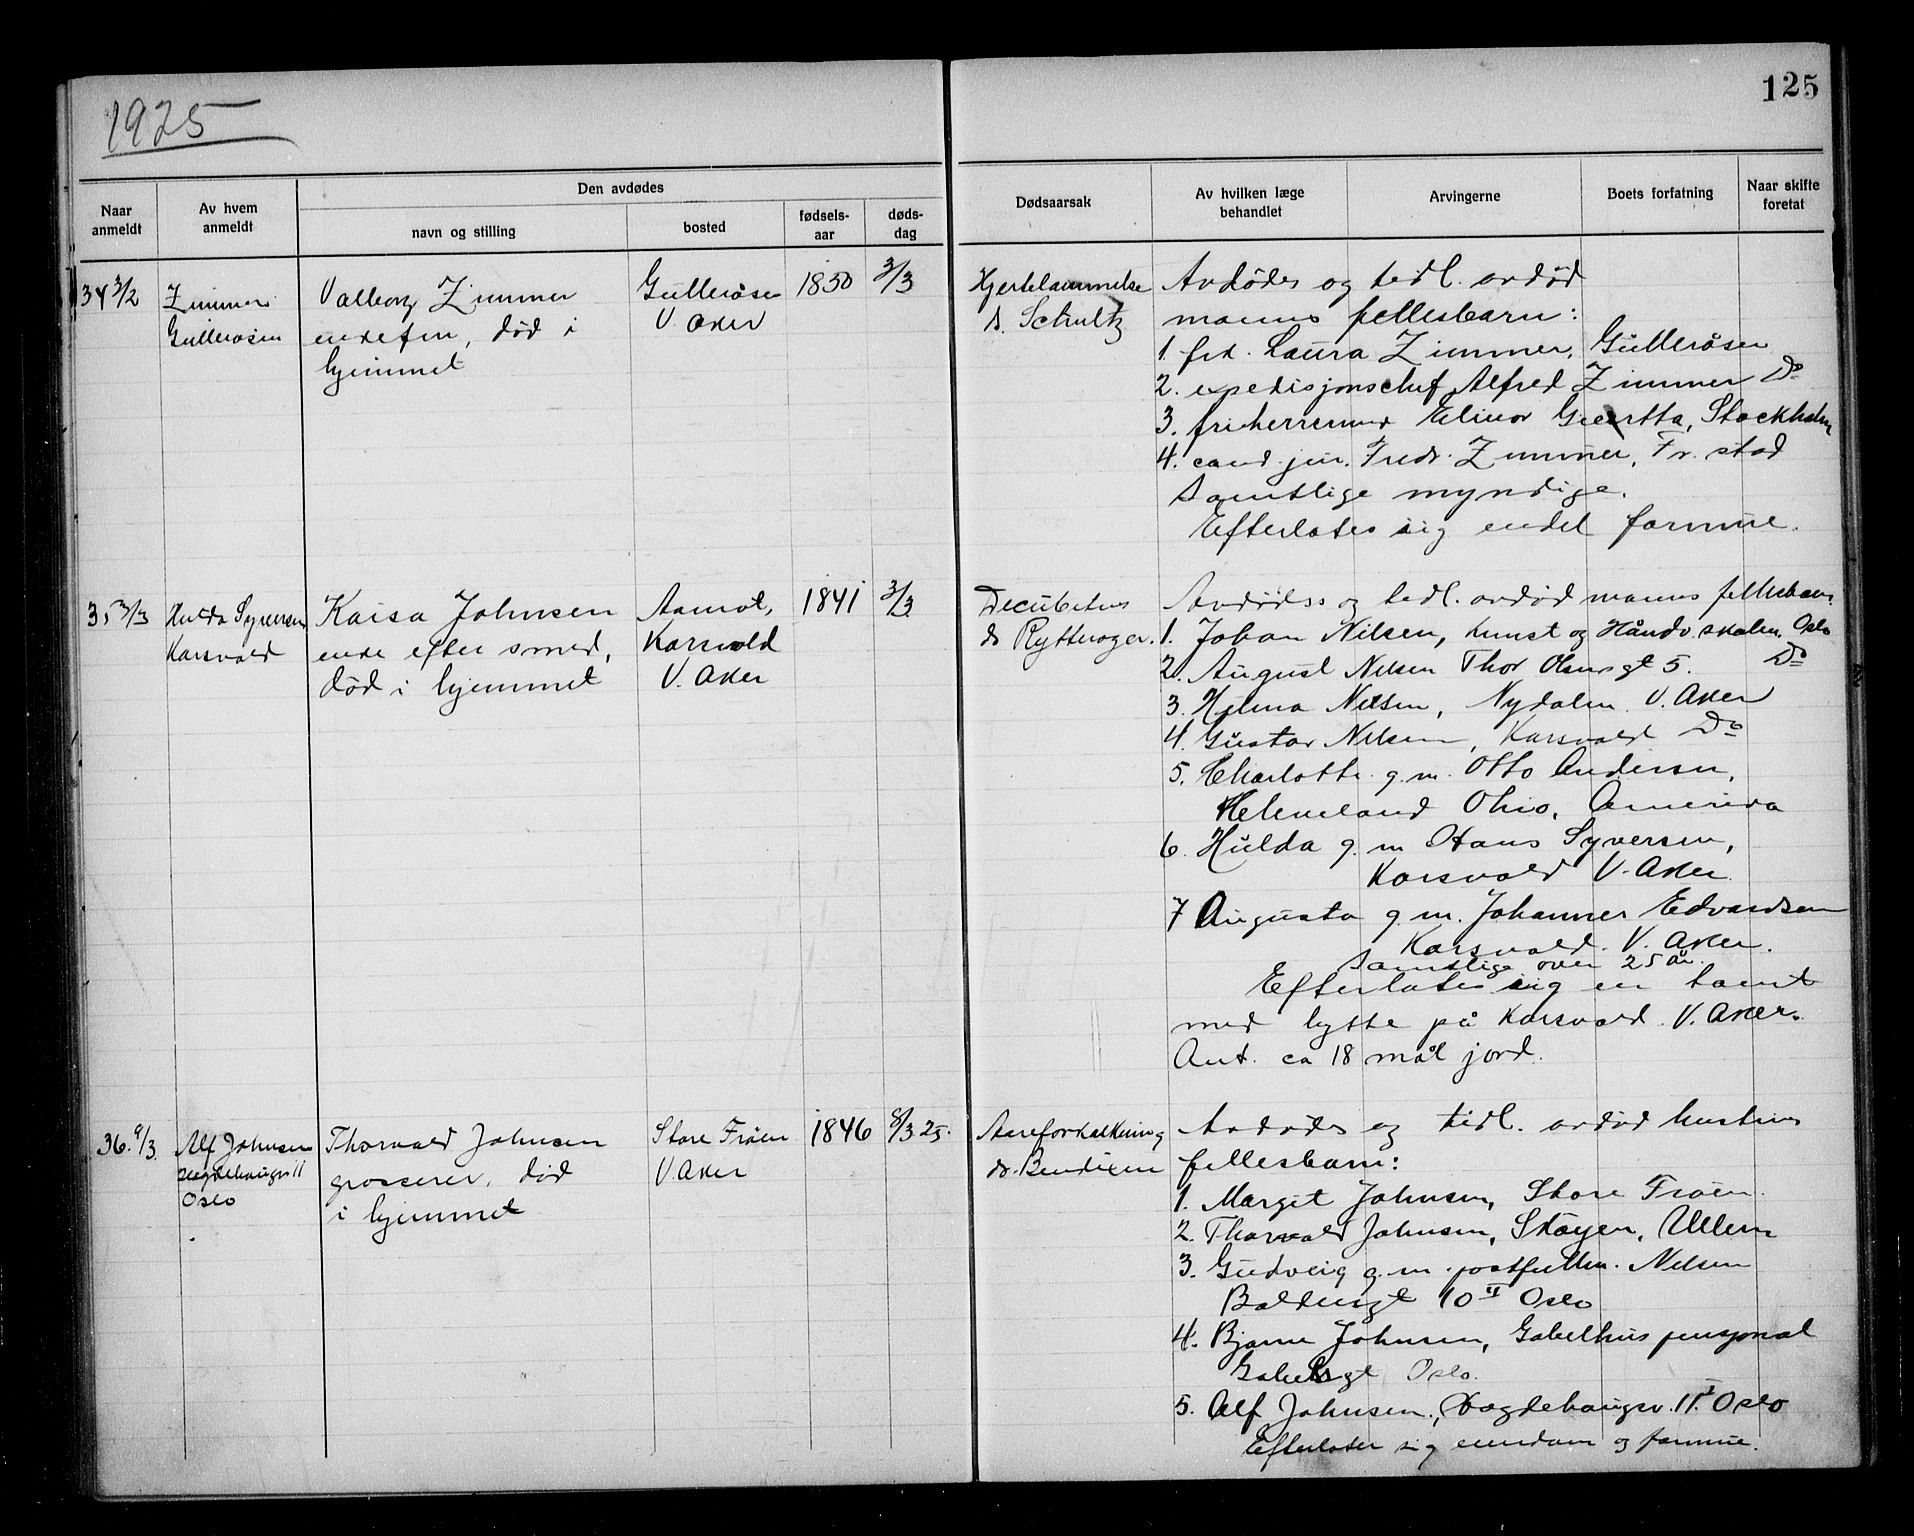 1925
125
Naar anmeldt
Av hvem anmeldt
Den avdødes
navn og stilling
bosted
fødsels-aar
døds-dag
Dødsaarsak
Av hvilken læge behandlet
Arvingerne
Boets forfatning
Naar skifte foretat
34 3/2
Zimmer
Gulleråsen
Valborg Zimmer
enkefru, død i
hjemmet
Gulleråsen
V. Aker
1850
3/3
Hjertelammelse
d. Schultz
Avdødes og tidl. avdød
manns fellesbarn:
1. frk. Laura Zimmer, Gulleråsen
2. expedisjonschef Alfred Zimmer Do
3. friherreinne Elinor Gieertta, Stockholm
4. cand. jur. Fredr. Zimmer, Fr.stad
Samtlige myndige.
Efterlater sig endel formue.
35 3/3
Hulda Syversen
Karsvold
Kaisa Johnsen
enke efter smed,
død i hjemmet
Aamot,
Karsvold
V. Aker
1841
3/3
Decubitus
dr Rytterager.
Avdødes og tidl. avdød manns fellesbarn
1. Johan Nilsen, Kunst og Håndv. skolen, Oslo
2. August Nilsen Thor Olsensgt 5. Do
3. Hilma Nilsen, Nydalen V. Aker
4. Gustav Nilsen, Karsvold Do
5. Charlotte g.m. Otto Andersen,
Cleveland Ohio, Amerika
6. Hulda g.m Hans Syversen,
Karsvold V. Aker.
7 Augusta g.m. Johannes Edvardsen
Karsvold. V. Aker.
Samtlige over 25 år.
Efterlater sig en tomt
med hytte på Karsvold. V. Aker.
Ant. ca 18 mål jord.
36. 9/3.
Alf Johnsen
Hegdehaugsv 11
Oslo
Thorvald Johnsen
grosserer, død
i hjemmet
Store Frøen
V. Aker
1846
8/3 25.
Aareforkalkning
dr. Bendixen
Avdødes og tidl. avdød hustrus
fellesbarn:
1. Margit Johnsen, Store Frøen.
2. Thorvald Johnsen, Skøyen, Ullern
3. Gudveig g.m. postfullm. Nilsen
Baldersgt 10 II Oslo
4. Bjarne Johnsen, Gabelshus pensjonat
Gabelsgt Oslo.
5. Alf Johnsen, Hegdehaugsv. 11 I Oslo
Efterlater sig eiendom og formue.